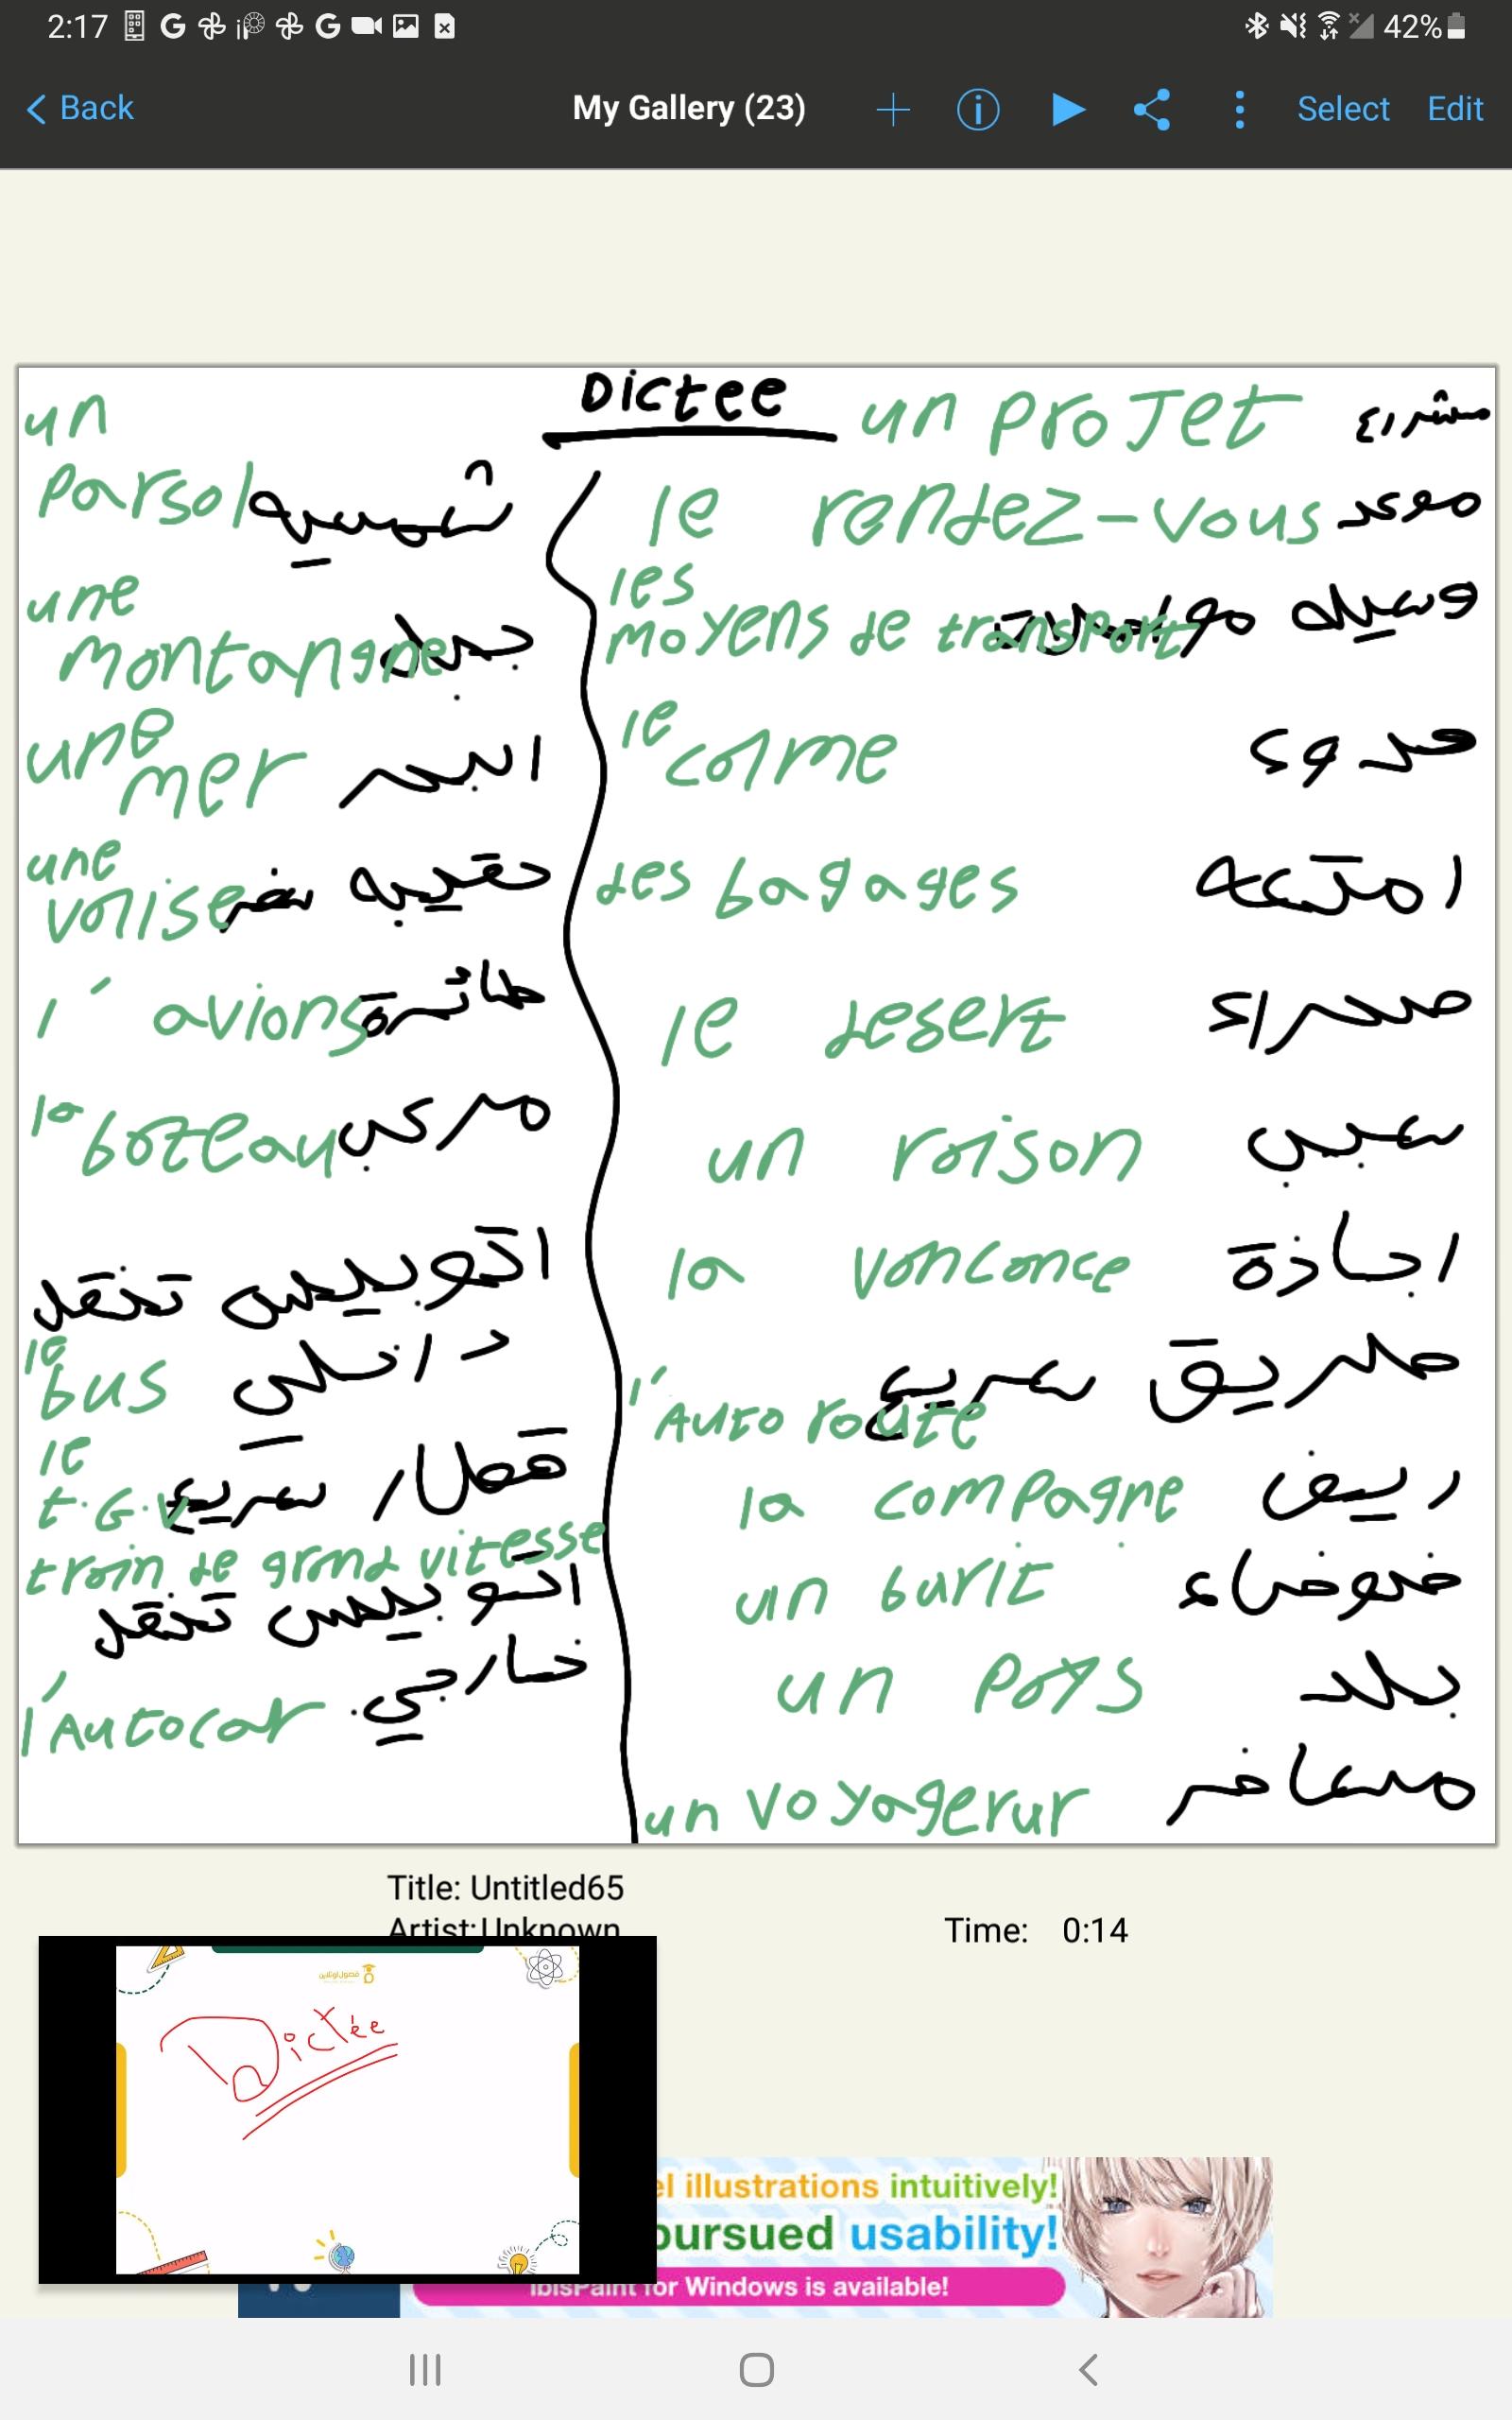 2:17
42%
Back
My Gallery (23)
Select
Edit
Dictee
un projet مشراع
le rendez-vous موعد
les
moyens de transport وسيله مواصلات
le
calme هدوء
des bagages امتعه
le desert صحراء
un raison سبب
la vancance اجازة
l'Autoroute طريق سريع
la compagne ريف
un burit ضوضاء
un pays بلد
un voyagerur مسافر
un
parsol شمسيه
une
montangne جبل
une
mer البحر
une
valise حقيبه سفر
l'avions طائرة
la bateau مركب
اتوبيس تنقل
le
bus داخلي
le
t.G.v قطار سريع
train de grand vitesse
اتوبيس تنقل
خارجي
l'Autocar
Title: Untitled65
Artist: Unknown
Time: 0:14
فصول اونلاين
Dictée
el illustrations intuitively!
pursued usability!
ibisPaint for Windows is available!